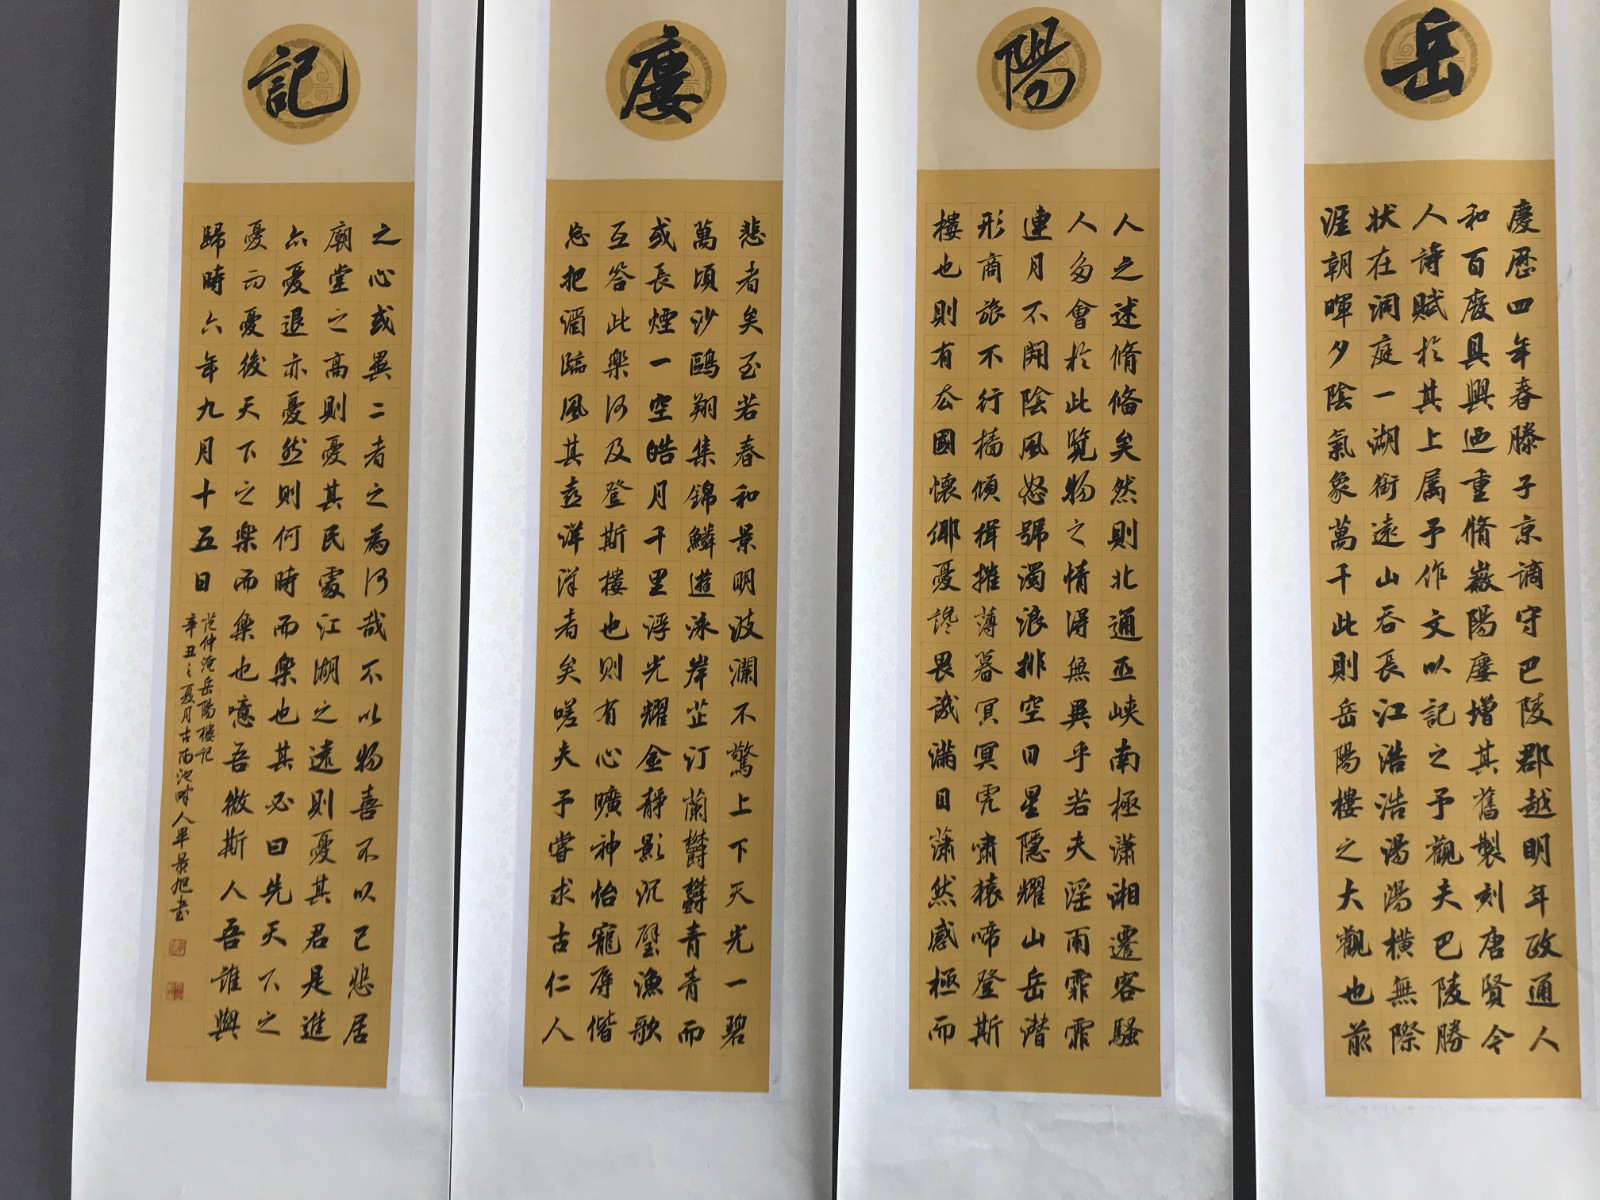 岳
慶歷四年春滕子京謫守巴陵郡越明年政通人
和百廢具興迺重脩嶽陽廔增其舊製刻唐賢今
人詩賦於其上属予作文以記之予觀夫巴陵勝
狀在洞庭一湖銜遠山吞長江浩浩湯湯橫無際
涯朝暉夕陰氣象萬千此則岳陽樓之大觀也前
陽
人之述脩俻矣然則北通巫峽南極潇湘遷客騷
人多會於此覽物之情得無異乎若夫淫雨霏霏
連月不開陰風怒號濁浪排空日星隱耀山岳潛
形商旅不行檣傾楫摧薄暮冥冥虎嘯猿啼登斯
樓也則有去國懷鄉憂讒畏譏滿目蕭然感極而
廔
悲者矣至若春和景明波瀾不驚上下天光一碧
萬頃沙鷗翔集錦鱗遊泳岸芷汀蘭欝欝青青而
或長煙一空皓月千里浮光耀金靜影沉璧漁歌
互答此樂何及登斯樓也則有心曠神怡寵辱偕
忘把酒臨風其喜洋洋者矣嗟夫予嘗求古仁人
記
之心或異二者之為何哉不以物喜不以己悲居
廟堂之高則憂其民處江湖之遠則憂其君是進
亦憂退亦憂然則何時而樂也其必曰先天下之
憂而憂後天下之樂而樂也噫吾微斯人吾誰與
歸時六年九月十五日
范仲淹岳陽樓記
辛丑之夏月古南池畔人畢景旭書